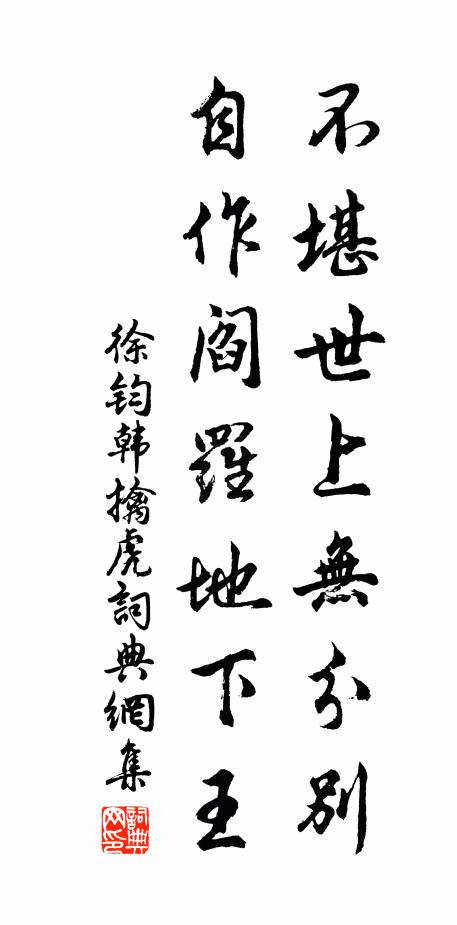 不堪世上無分別
自作閻羅地下王
徐鈞韩擒虎詞典網集
詞典网印